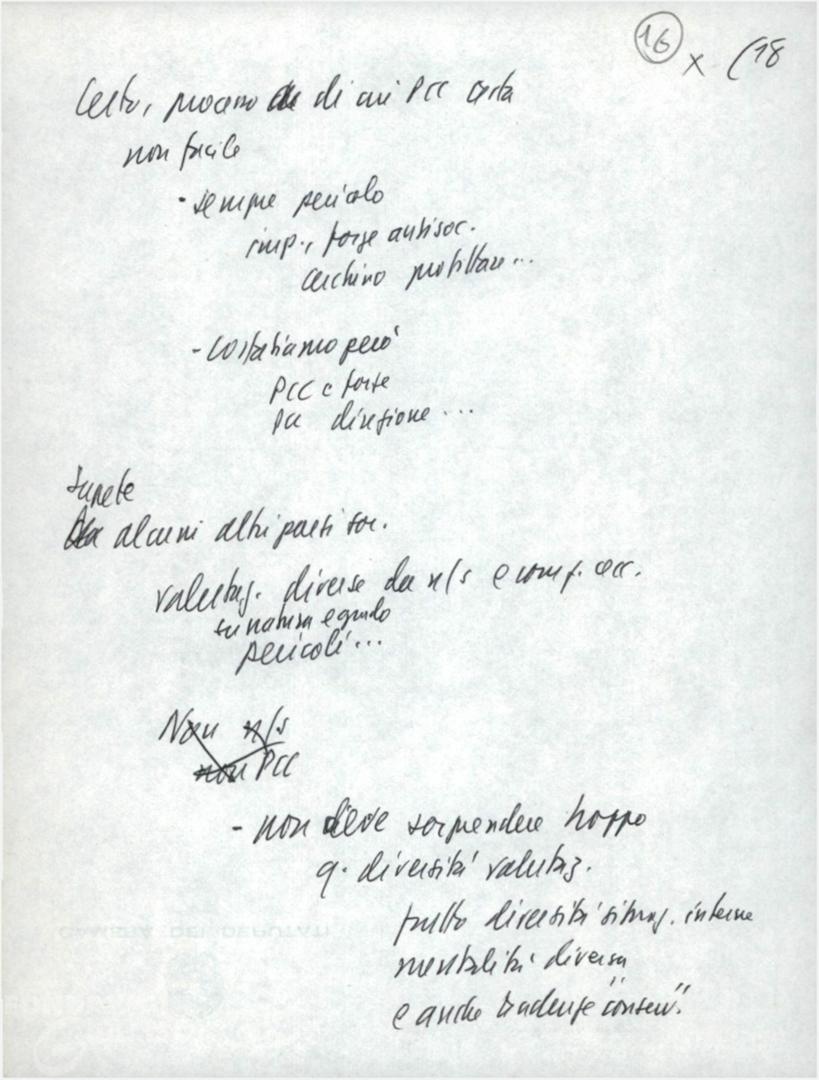 16 x (18
Certo, processo di cui PCC certa
non facile
- sempre pericolo
imp., forze antisoc.
cerchino profittare...
- Costatiamo però
PCC è forte
PCC direzione...
Sapete
alcuni altri paesi soc.
valutaz. diverse da n/s e comp. cecc.
su natura e grado
pericoli...
Non n/s
non PCC
- non deve sorprendere troppo
q. diversità valutaz.
frutto diversità situaz. interne
mentalità diversa
e anche tendenze "conserv."
CAMERA DEI DEPUTATI